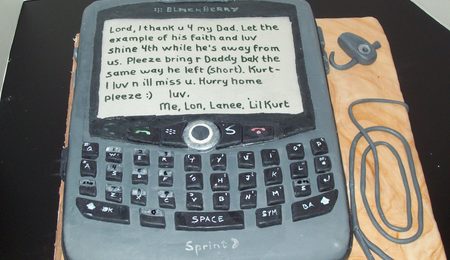 BLACKBERRY
Lord, I thank u 4 my Dad. Let the
example of his faith and luv
shine 4th while he's away from
us. Pleeze bring r Daddy bak the
same way he left (short). Kurt-
I luv n ill miss u. Hurry home
pleeze :) luv.
Me, Lon, Lanee, 'Lil Kurt
S
SPACE SYM
Sprint